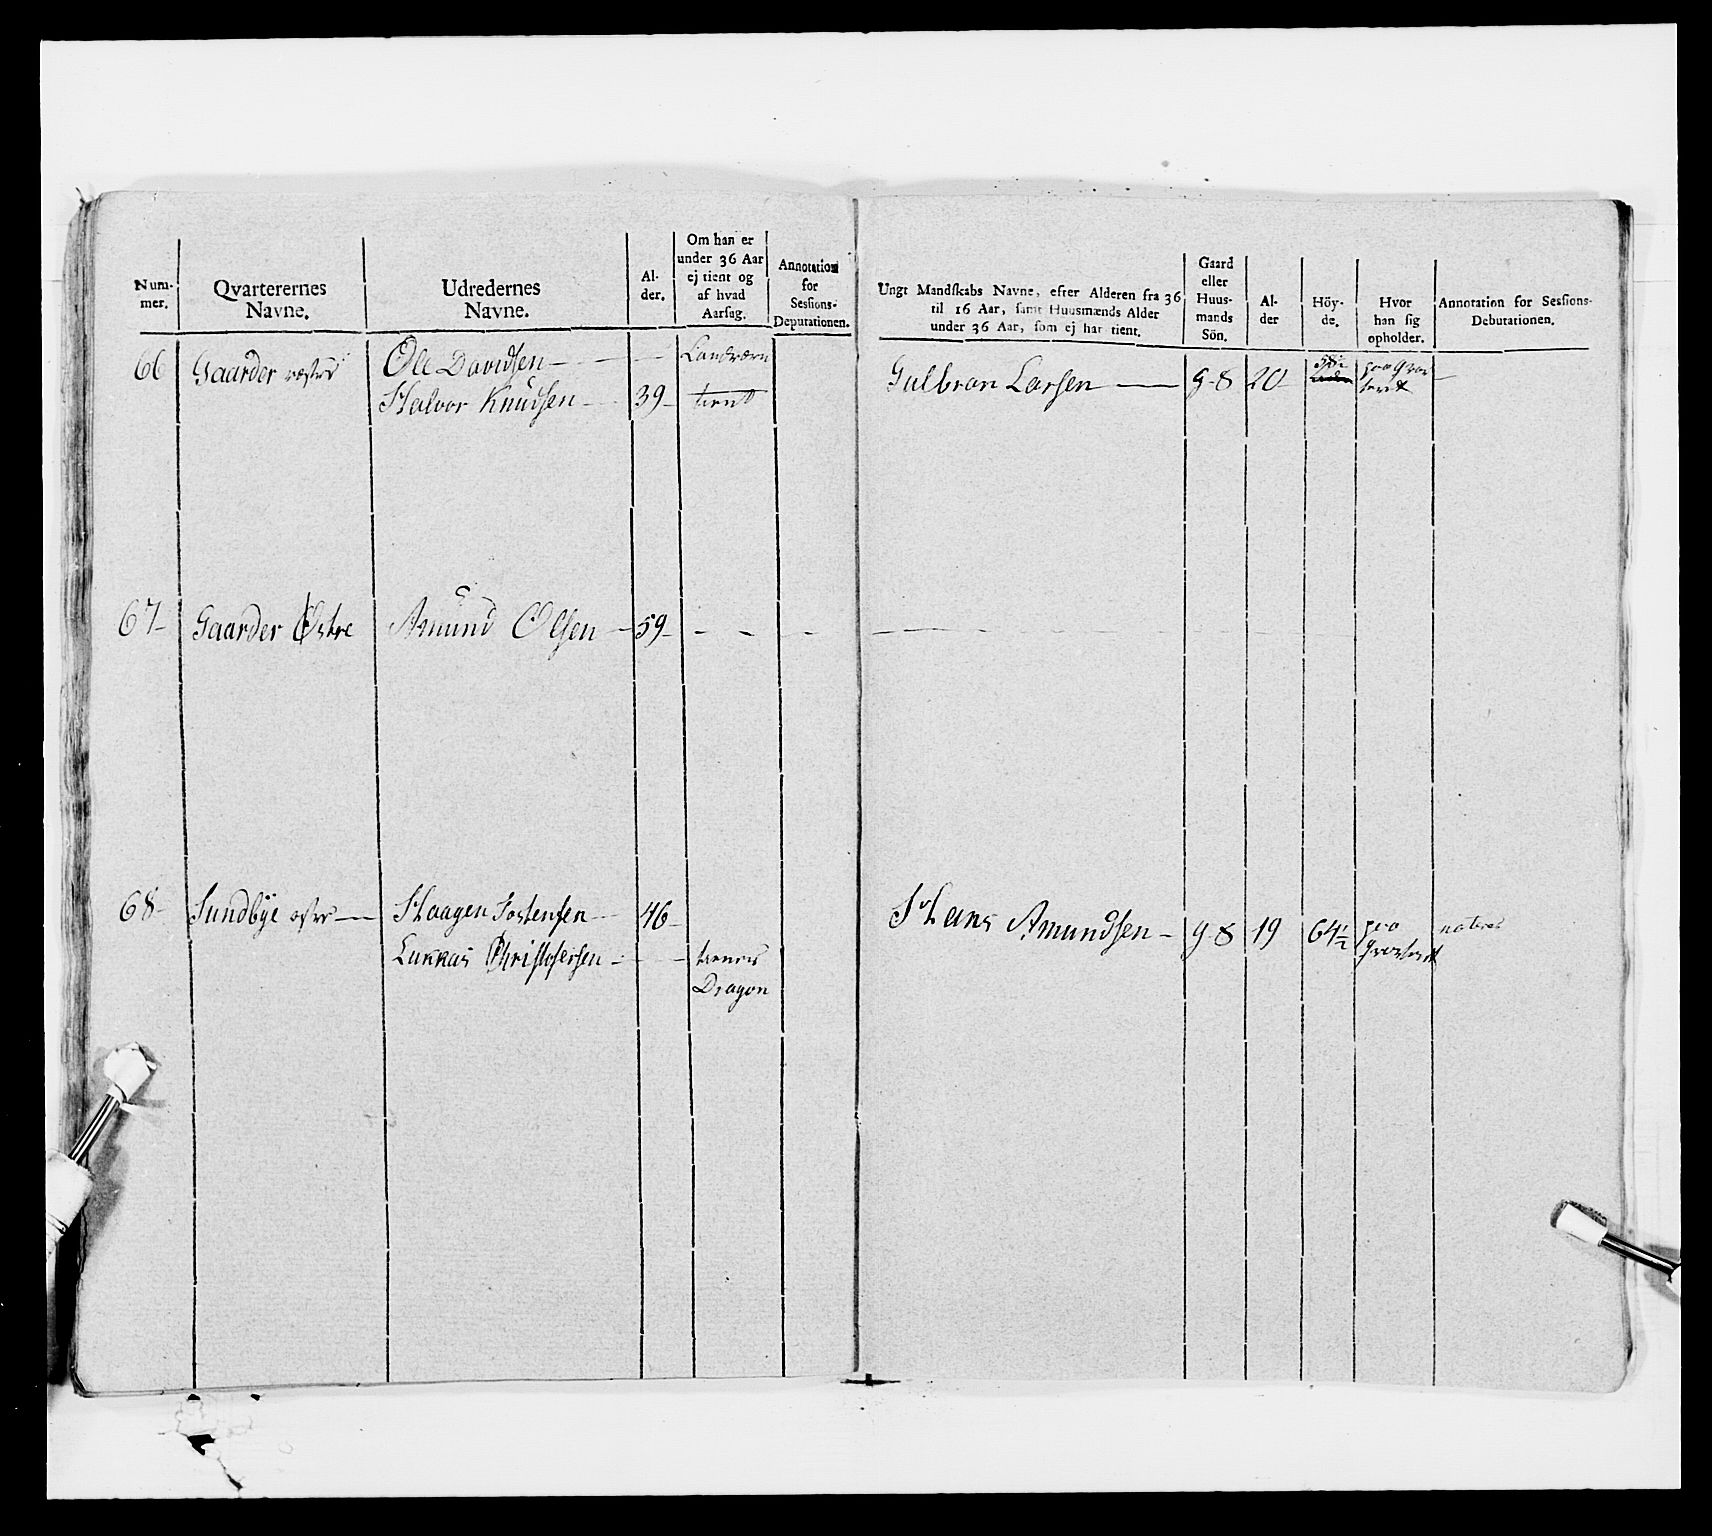 Num-
mer.
Qvarterernes
Navne.
Udredernes
Navne.
Al-
der.
Om han er
under 36 Aar
ej tient og
af hvad
Aarsag.
Annotation
for
Sessions-
Deputationen.
Ungt Mandskabs Navne, efter Alderen fra 36
til 16 Aar, samt Huusmænds Alder
under 36 Aar, som ej har tient.
Gaard
eller
Huus-
mands
Sön.
Al-
der
Höy-
de.
Hvor
han sig
opholder.
Annotation for Sessions-
Debutationen.
66 Gaarder Ole Davidsen — — Landværn
Halvor Knudsen — 39 - tient
Gulbran Larsen — g-S 20 paa
67 - Gaarder Østre Amund Olsen — 59 - - -
68 - Sundbye — Haagen Jostensen — 46 -
Lukkas Christofersen - - - tiener
Dragon
Hans Amundsen - g-S 19 64½ paa